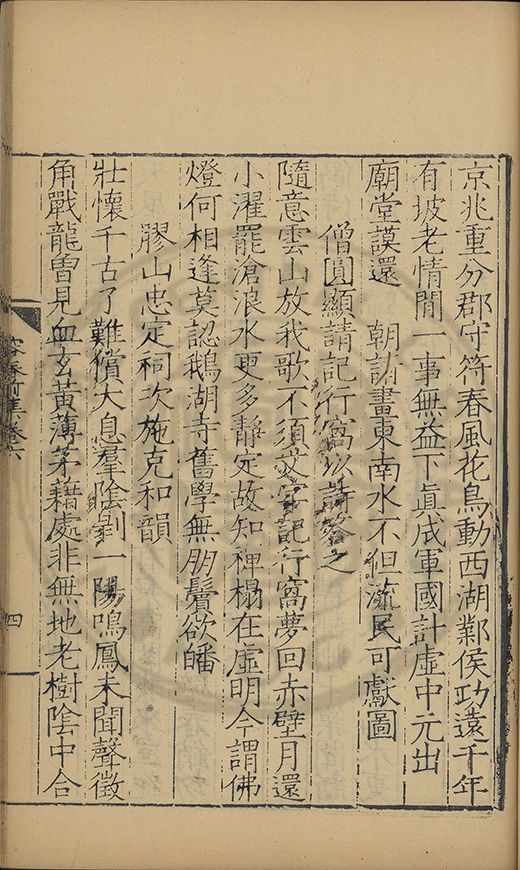 京兆重分郡守符春風花鳥動西湖鄴侯功遠千年
有坡老情閒一事無益下真成軍國計虛中元出
廟堂謨還　朝請畫東南水不但流民可獻圖
僧圓顯請記行窩以詩答之
隨意雲山放我歌不須文字記行窩夢回赤壁月還
小濯罷滄浪水更多靜定故知禪榻在虛明今謂佛
燈何相逢莫認鵝湖寺舊學無朋鬢欲皤
膠山忠定祠次施克和韻
壯懷千古了難償大息羣陰剝一陽鳴鳳未聞聲徵
角戰龍曾見血玄黃薄茅藉處非無地老樹陰中合
容春前集卷六
四